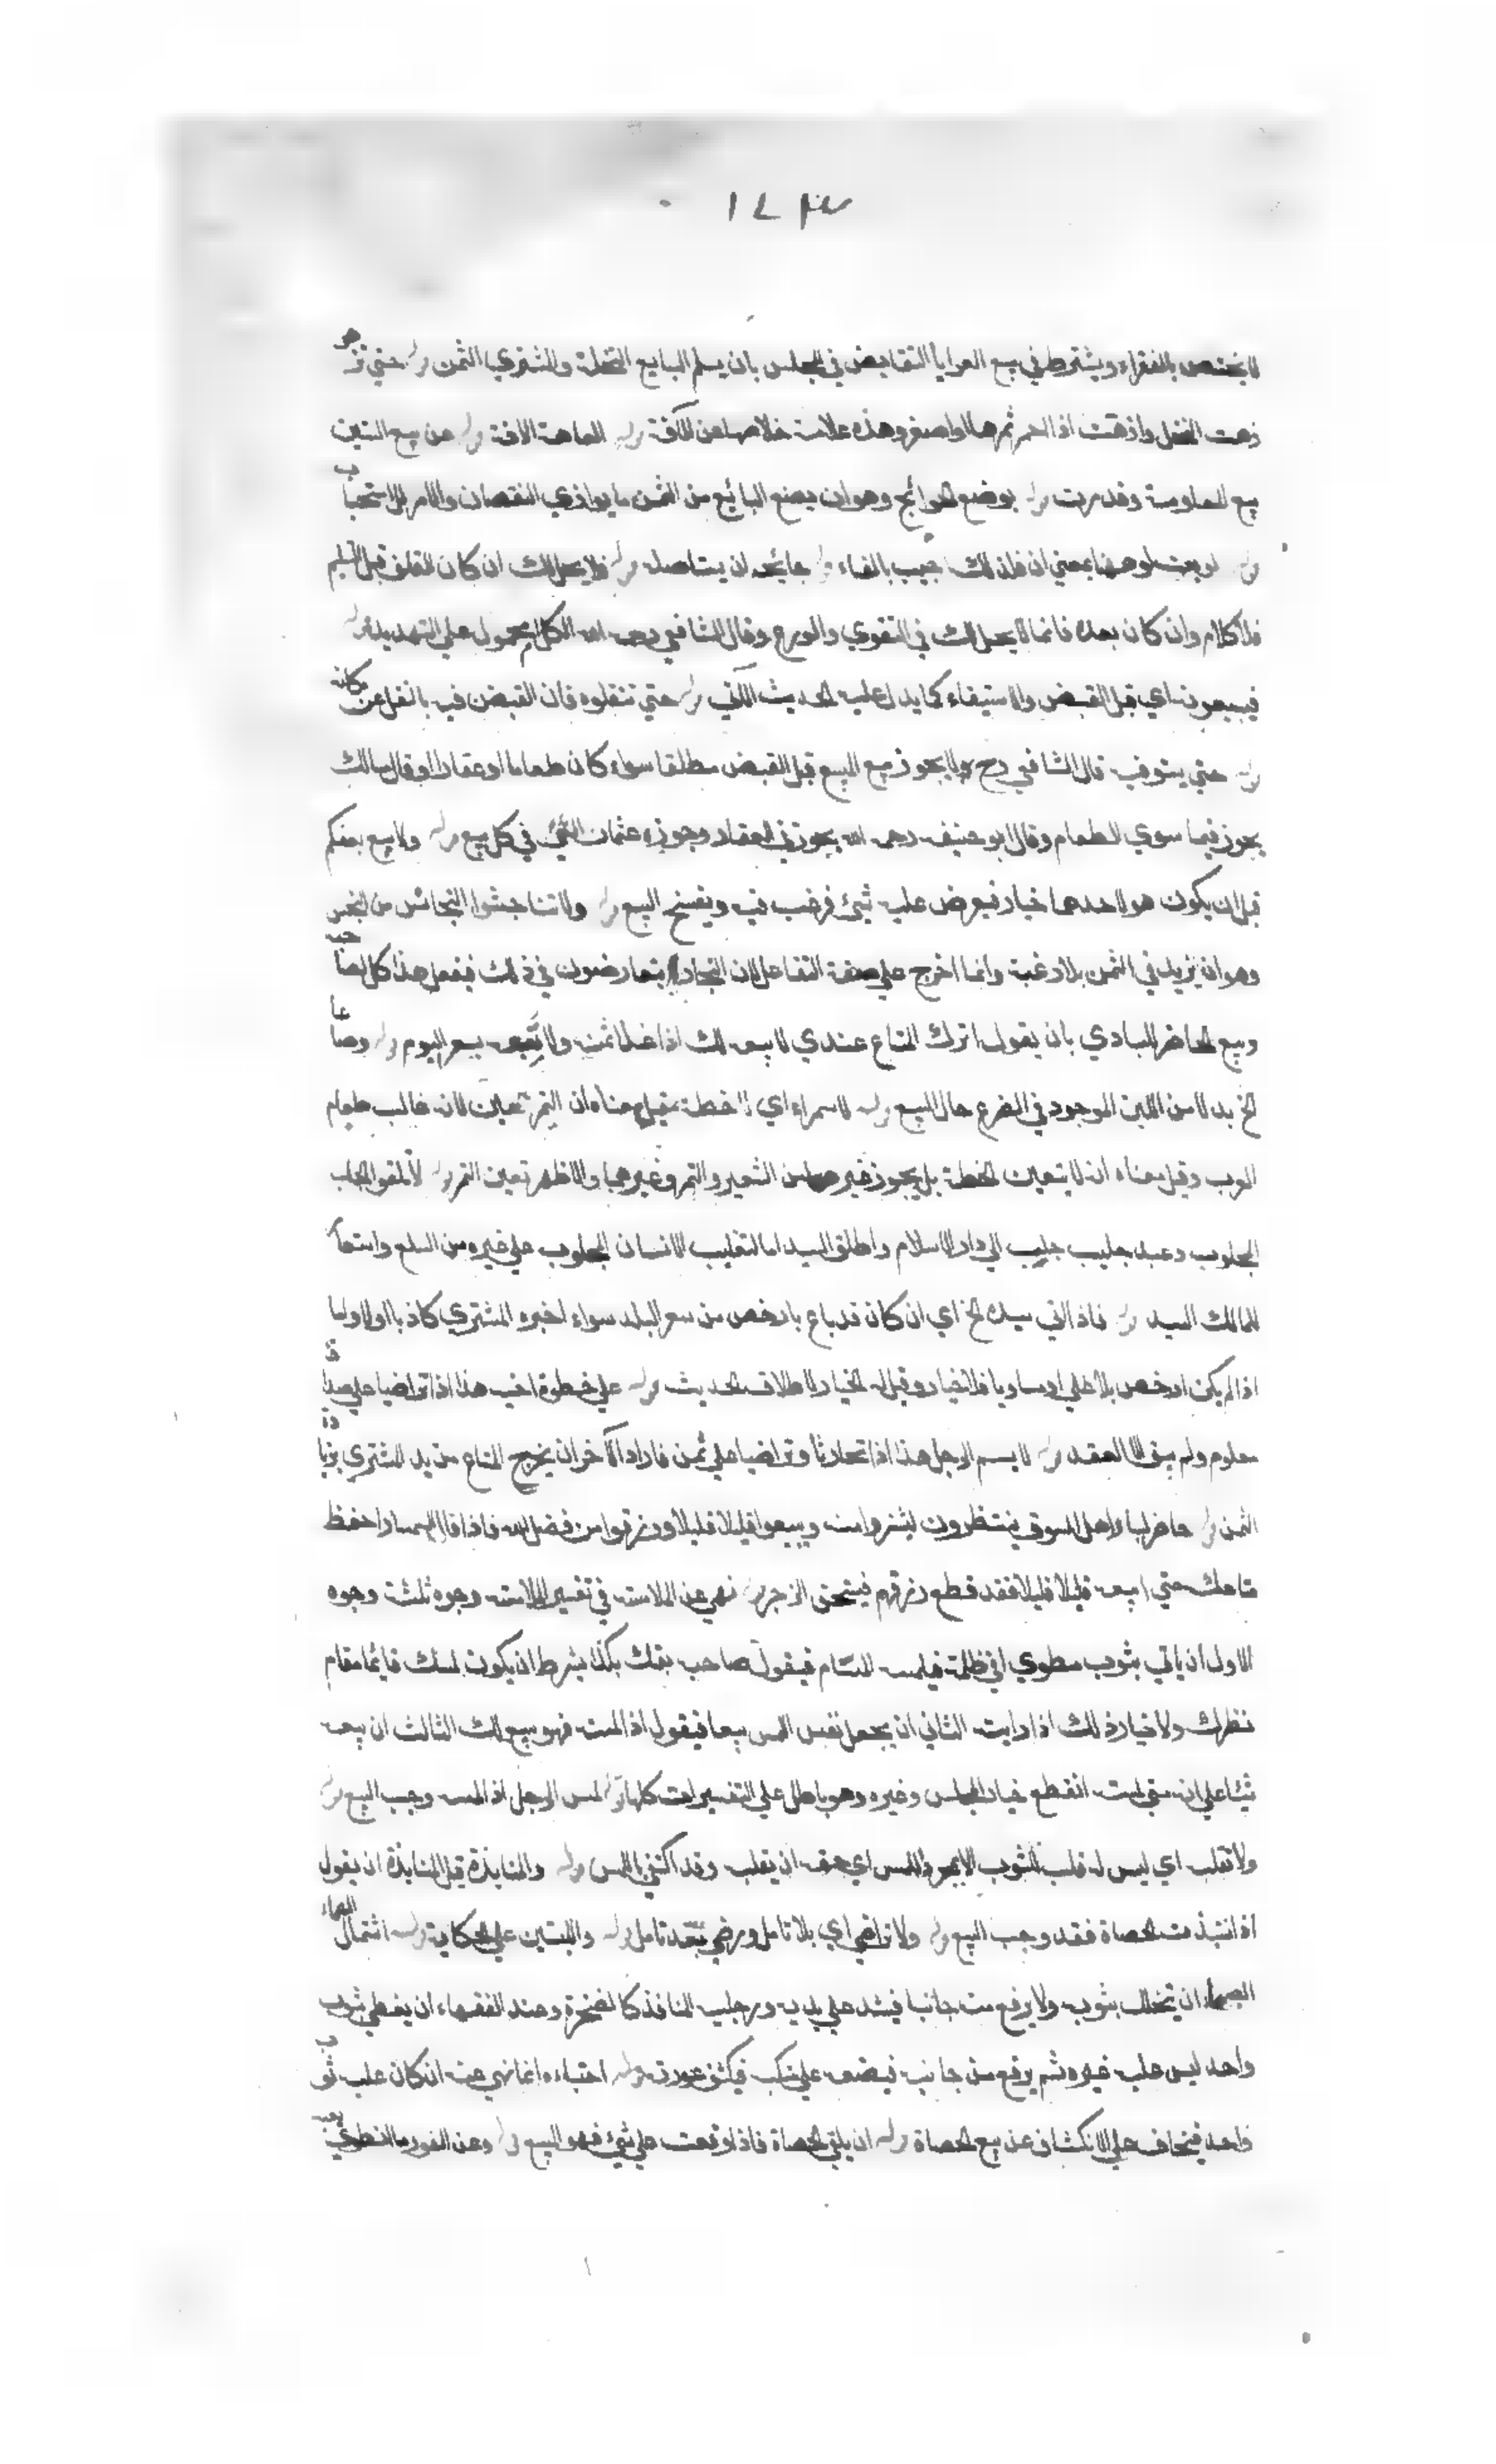 ١٧٣
لا يختص بالفقراء ويشترط في بيع العرايا التقابض في المجلس بان يسلم البايع النخلة والمشتري الثمن وله حتى تزهو
زهت النخل وازهت اذا احمر ثمرها او اصفر وهذه علامة خلاصها من الآفة وله العاهة الافة وله عن بيع السنين
بيع المعاومة وقد مرت وله بوضع الجوائح وهو ان يضع البائع من الثمن ما يوازي النقصان والامر للاستحباب
وله لو بعت لو هنا بمعنى ان فلذلك اجيب بالفاء وله جائحة ان يستاصل وله فلا يحل لك ان كان التلف قبل التسليم
فلا كلام وان كان بعده فانما لا يحل لك في التقوي والورع وقال الشافعي رحمه الله الكل محمول على التهديد وله
فيبيعونه اي قبل القبض والاستيفاء كما يدل عليه الحديث الآتي وله حتى تنقلوه فان القبض فيه بالنقل عن مكانه
وله حتى يستوفيه قال الشافعي رح ولا يجوز بيع المبيع قبل القبض مطلقا سواء كان طعاما او عقارا وقال مالك
يجوز فيما سوي الطعام وقال ابو حنيفه رحمه الله يجوز في العقار وجوزه عثمان البتي في كل بيع وله ولا يبيع بعضكم
قبل ان يكون هو لاحدهما خيار فيعرض عليه شئ فرغب فيه ويفسخ البيع وله ولا تناجشوا التناجش من النجش
وهو ان يزيد في الثمن بلا رغبة وانما اخرج على صفة التفاعل لان التجار يتعارضون في ذلك فيفعل هذا كل لصاحبه
وبيع الحاضر للبادي بان يقول اترك المتاع عندي لابيعه لك اذا غلا ثمنه ولا تبعه بسعر اليوم وله وصاعا
الخ بدلا من اللبن الموجود في الضرع حال البيع وله لا سمراء اي لا حنطة قيل معناه ان التمر تعين لانه غالب طعام
العرب وقيل معناه انه لا يتعين الحنطة بل يجوز غيرها من الشعير والتمر وغيرهما والاظهر تعين التمر وله لا تلقوا الجلب
المجلوب وعبد جليب جلب الى دار الاسلام واطلق السيد اما لتغليب الانسان المجلوب على غيره من السلع واستعا
للمالك السيد وله فاذا اتي سيده الخ اي ان كان قد باع بارخص من سعر البلد سواء اخبره المشتري كاذبا اولا واما
اذا لم يكن ارخص بل اغلي او مساويا فلا خيار وقيل له الخيار لاطلاق الحديث وله على خطبة اخيه هذا اذا تراضيا على صداق
معلوم ولم يبق الا العقد وله لا يسم الرجل هذا اذا تحادثا وتراضيا على ثمن فاراد الآخر ان يخرج المتاع من يد المشتري بزيادة
الثمن وله حاضر لباد اهل السوق ينتظرون ليشتروا منه ويبيعوا قليلا قليلا ورزقوا من فضل الله فاذا قال السمسار احفظ
متاعك حتى ابيعه قليلا قليلا فقد قطع رزقهم فيستحق الزجر وله نهى عن الملامسة في تفسير الملامسة وجوه ثلثة وجوه
الاول ان ياتي بثوب مطوي او في ظلمة فيلمسه المستام فيقول صاحبه بعتك بكذا بشرط ان يكون لمسك قائما مقام
نظرك ولا خيار ذلك اذا رايته الثاني ان يجعل نفس اللمس بيعا فيقول اذا لمسته فهو بيع لك الثالث ان يبيعه
شيئا على انه متى لمسه انقطع خيار المجلس وغيره وهو باطل على التفسيرات كلها وله لمس الرجل اذا لمسه وجب البيع وله
ولا تقلبه اي ليس له قلب الثوب الا بمجرد اللمس اي حقه ان يقلبه وقد اكتفي باللمس وله والمنابذة قيل المنابذة ان يقول
اذا نبذت الحصاة فقد وجب البيع وله ولا تراضي اي بلا تامل ورضى بعد تامل وله واللبستين على الحكاية وله اشتمال الصماء
الصماء ان تخلل بثوبه ولا يرفع منه جانبا فيشد على يديه ورجليه المنافذ كالصخرة وعند الفقهاء ان يغطي بثوب
واحد ليس عليه غيره ثم يرفع من جانبه فيضعه على منكبه فيكشف عورته وله احتباءه انما نهي عنه ان كان عليه ثوب
واحد فيخاف على الانكشاف عن بيع الحصاة وله ان يلقي الحصاة فاذا وقعت على شئ فهو المبيع وله وعن الغرر ما انطوى